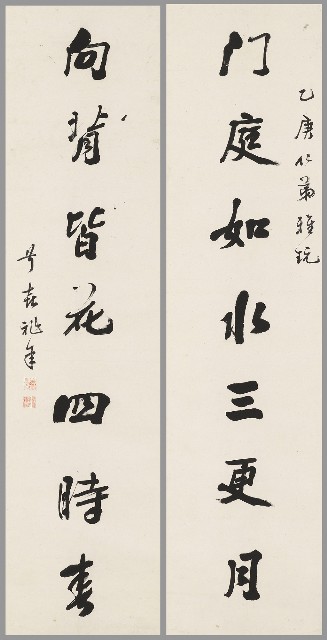 乙庚仁弟雅玩
門庭如水三更月
向背皆花四時春